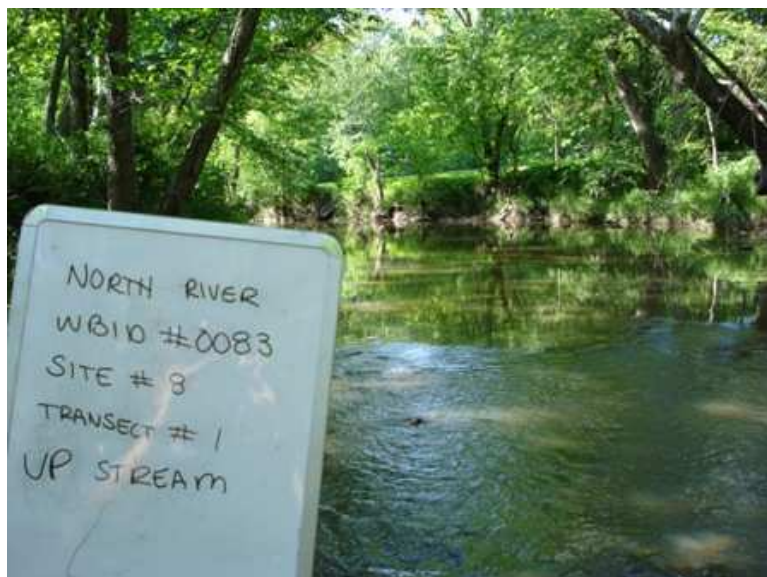 NORTH RIVER
WBID #0083
SITE # 8
TRANSECT # 1
UP STREAM